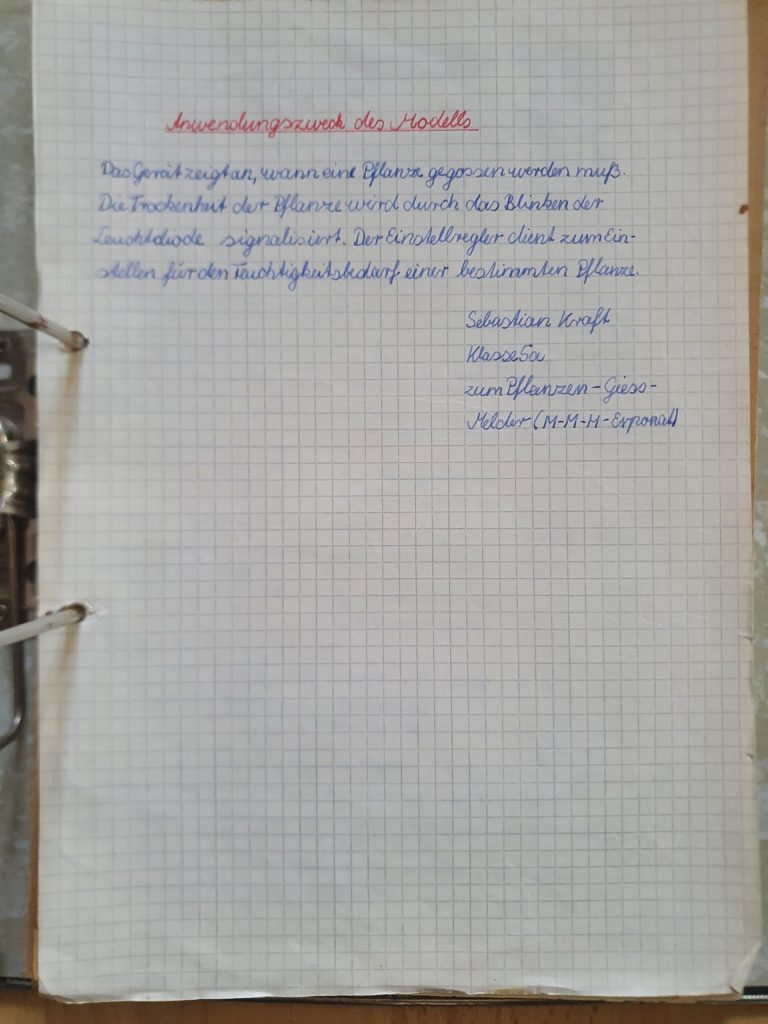 Anwendungszweck des Modells
Das Gerät zeigt an, wann eine Pflanze gegossen werden muß.
Die Trockenheit der Pflanze wird durch das Blinken der
Leuchtdiode signalisiert. Der Einstellregler dient zum Ein-
stellen für den Feuchtigkeitsbedarf einer bestimmten Pflanze.
Sebastian Kraft
Klasse 5a
zum Pflanzen-Giess-
Melder (M-M-M-Exponat)